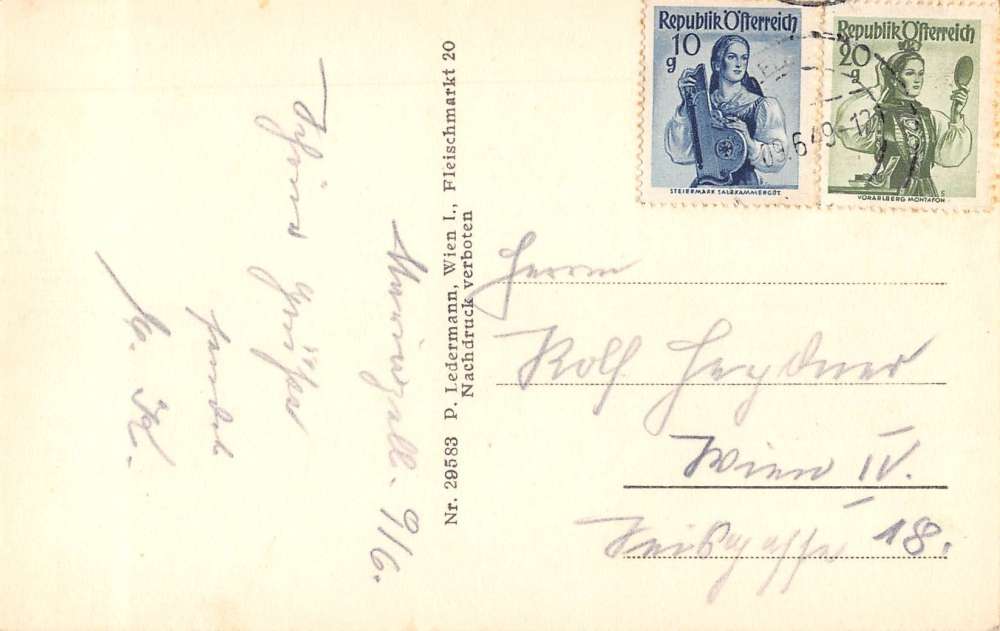 Republik Österreich
10
g
STEIERMARK SALZKAMMERGUT
Republik Österreich
20
g
VORARLBERG MONTAFON
09.6.49-12
Mariazell. 9/6.
Schöne Grüße
sendet
K.
Nr. 29583 P. Ledermann, Wien I., Fleischmarkt 20
Nachdruck verboten
Herrn
Rolf
Wien IV.
18.